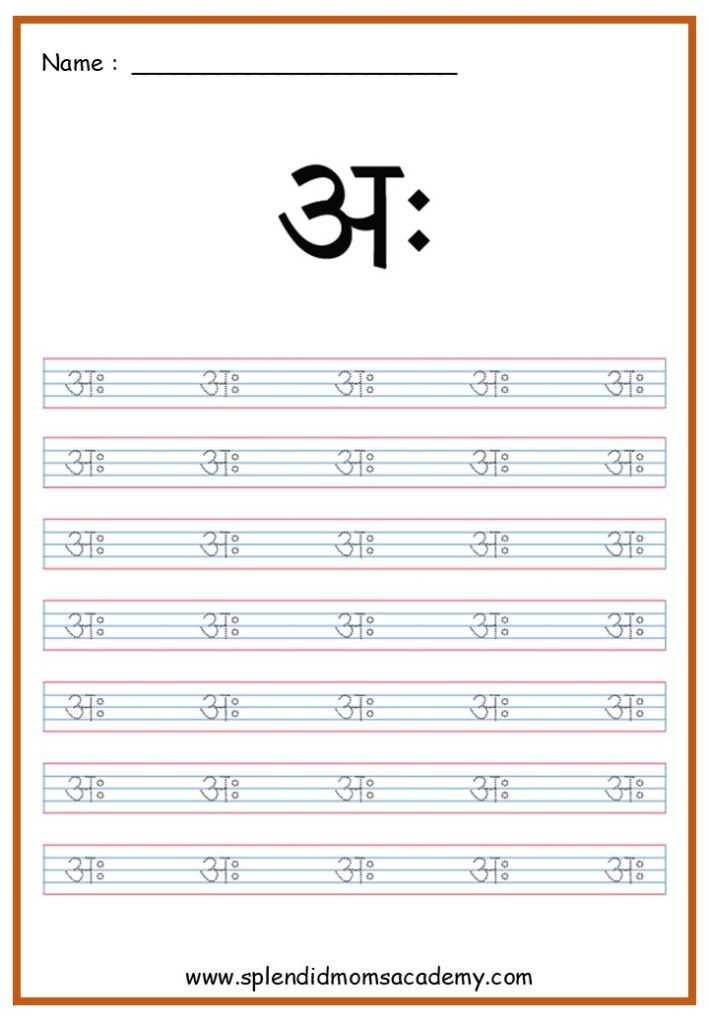 Name : ______________________
अः
अः अः अः अः अः
अः अः अः अः अः
अः अः अः अः अः
अः अः अः अः अः
अः अः अः अः अः
अः अः अः अः अः
अः अः अः अः अः
www.splendidmomsacademy.com